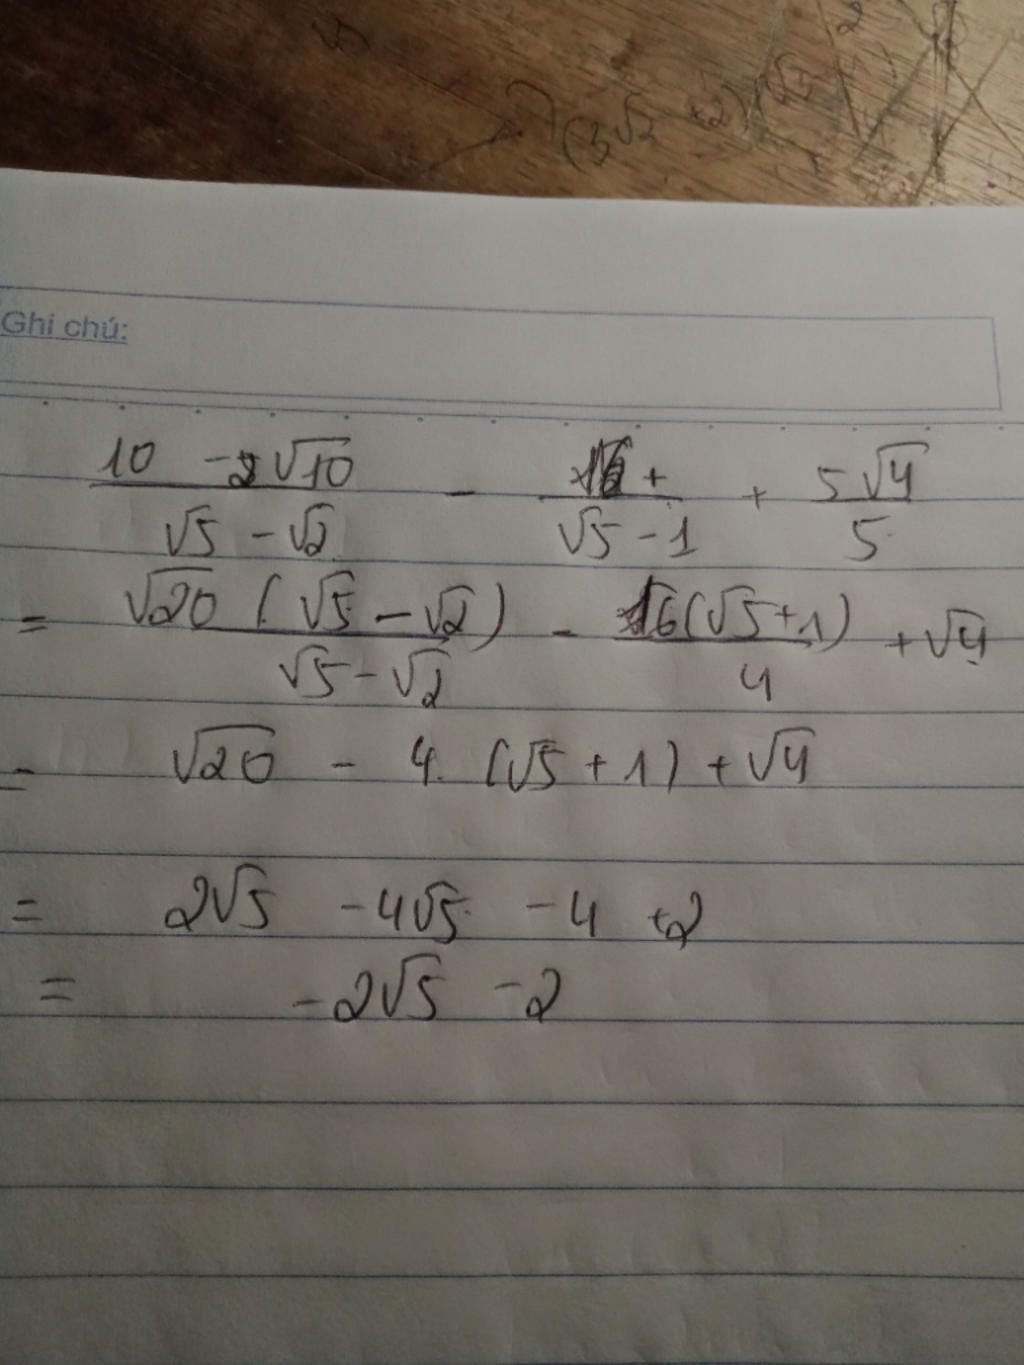 (3√2 +2)
Ghi chú:
10 -2√10 / √5 -√2 - 16 / √5 -1 + 5√4 / 5
= √20 (√5 -√2) / √5 -√2 - 16(√5+1) / 4 +√4
= √20 - 4. (√5 +1) +√4
= 2√5 -4√5 -4 +2
= -2√5 -2